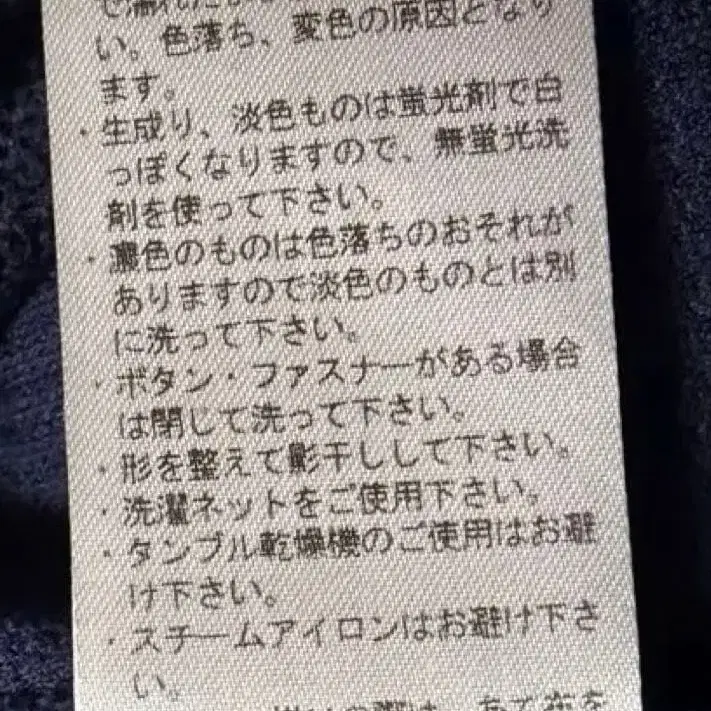 で濡れたまま
い。色落ち、変色の原因となり
ます。
・生成り、淡色ものは蛍光剤で白
っぽくなりますので、無蛍光洗
剤を使って下さい。
・濃色のものは色落ちのおそれが
ありますので淡色のものとは別
に洗って下さい。
・ボタン・ファスナーがある場合
は閉じて洗って下さい。
・形を整えて影干しして下さい。
・洗濯ネットをご使用下さい。
・タンブル乾燥機のご使用はお避
け下さい。
・スチームアイロンはお避け下さ
い。
の際は、あて布を